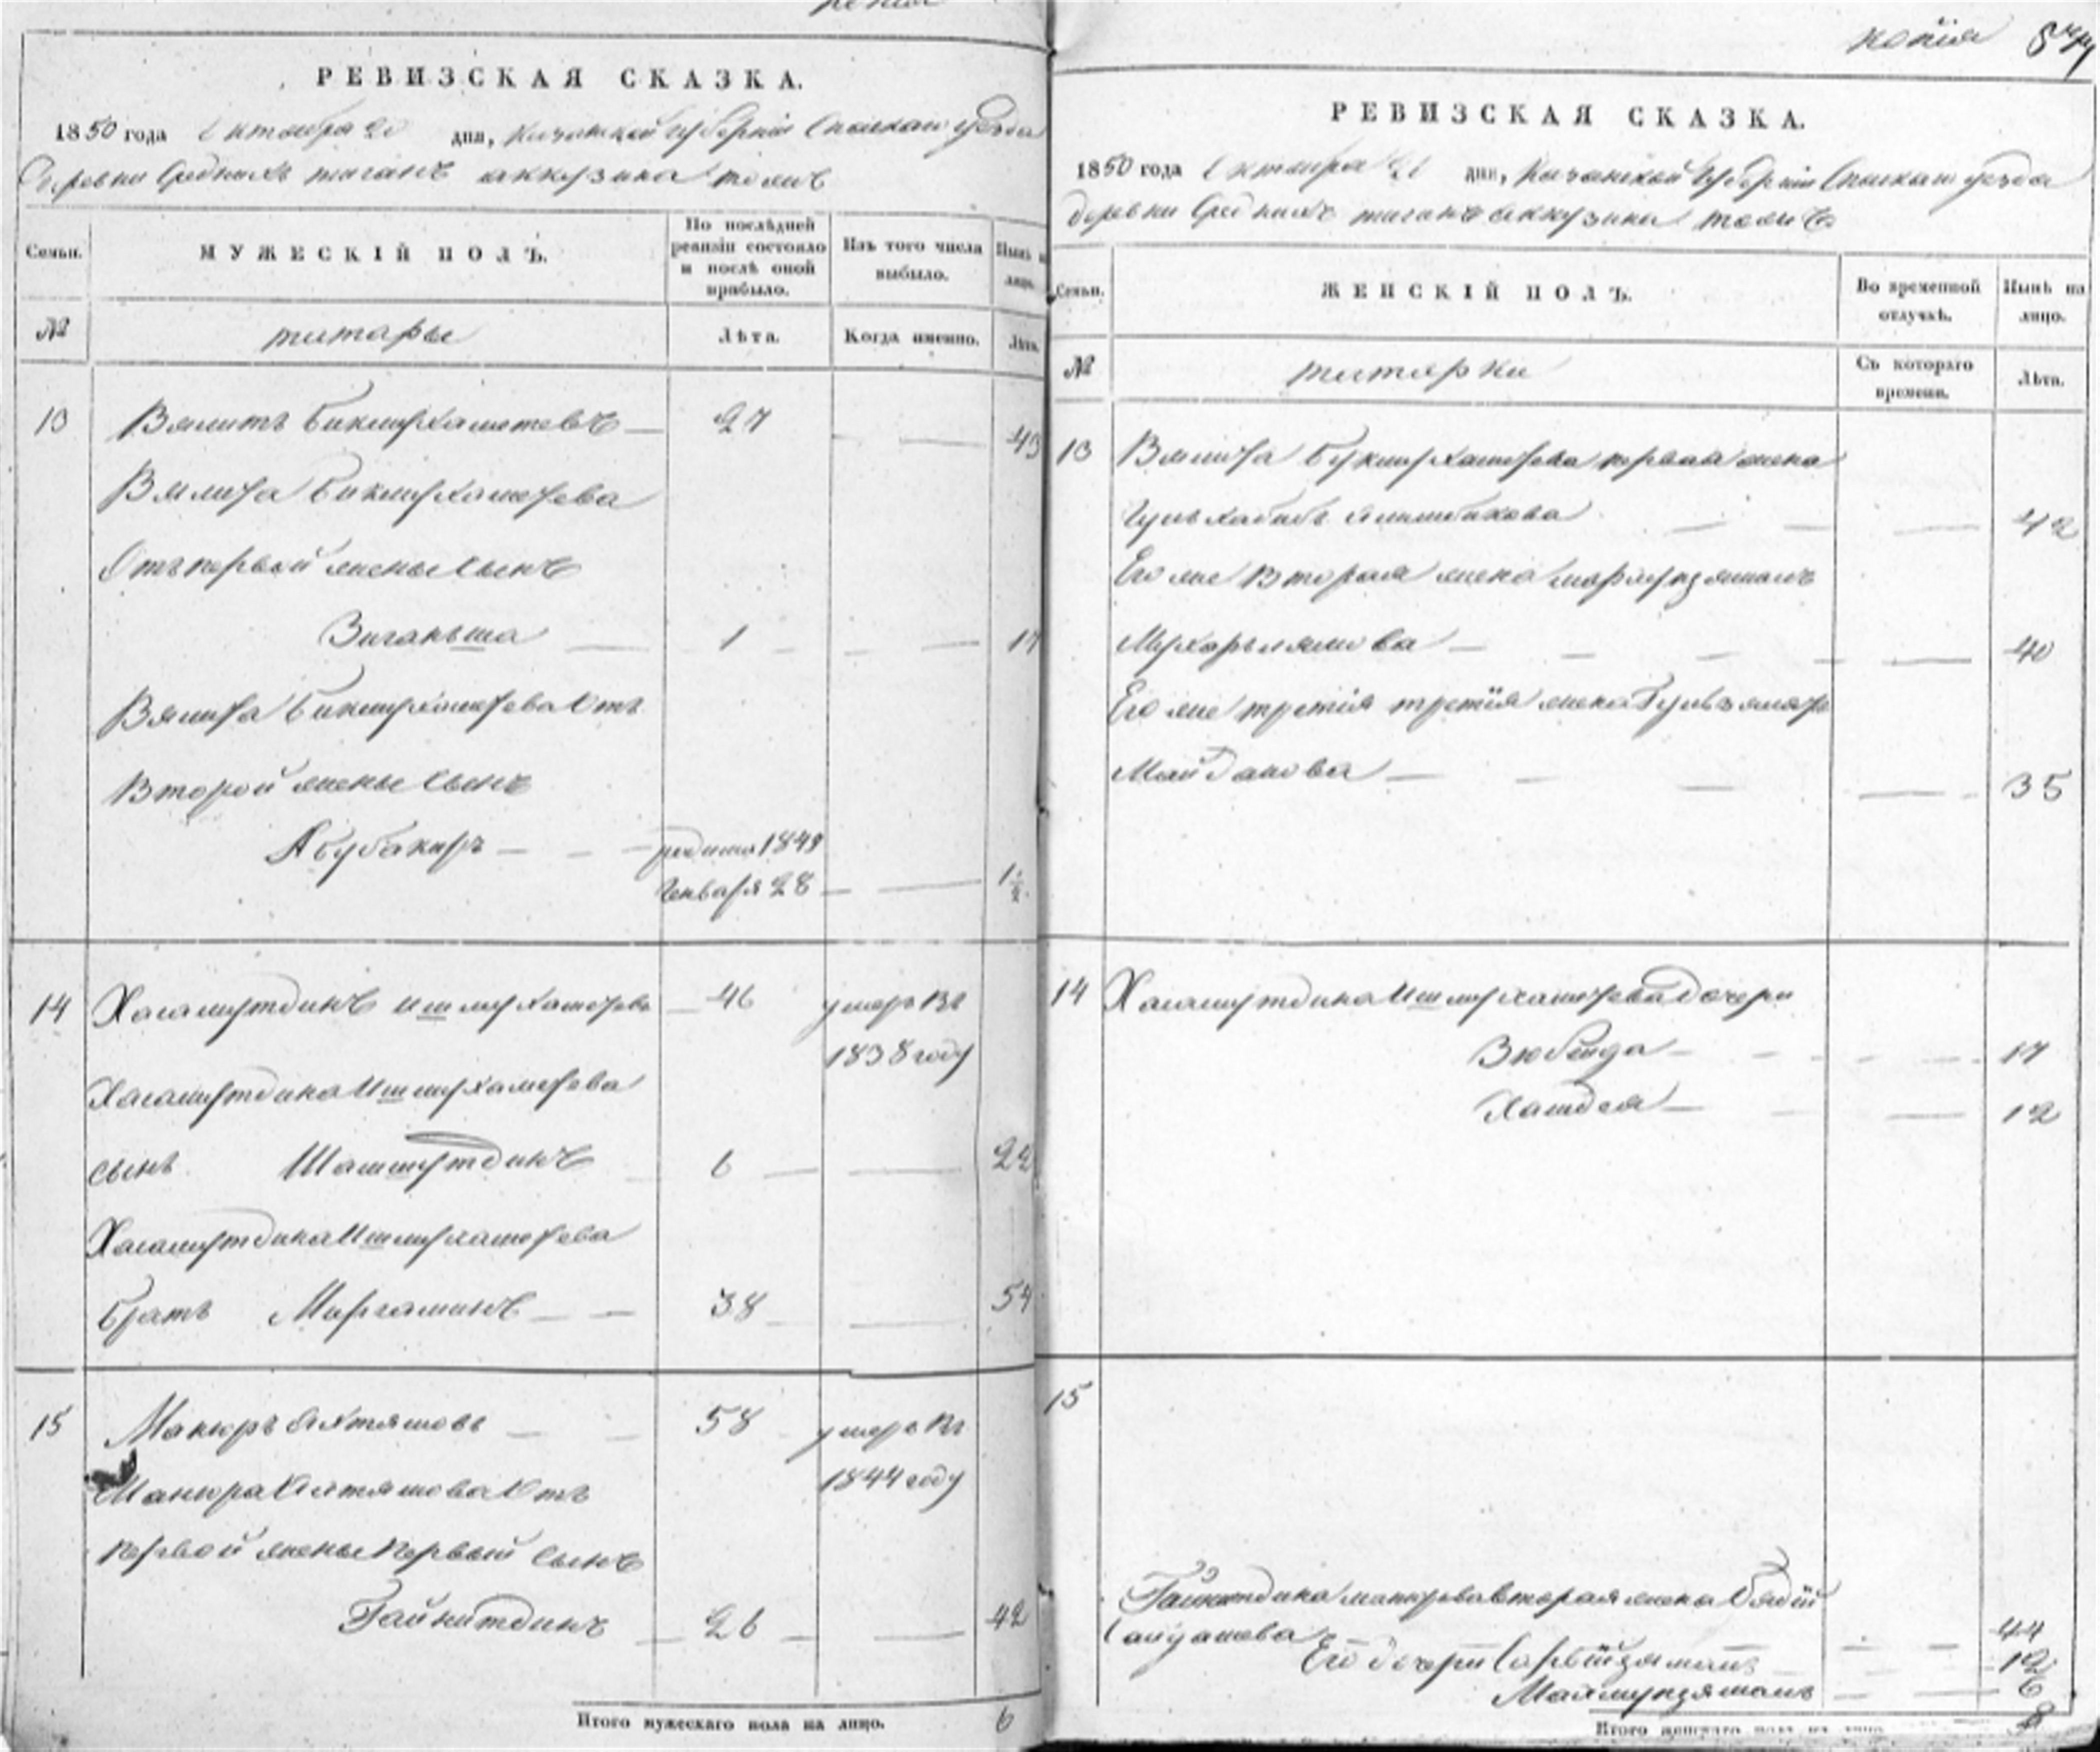 РЕВИЗСКАЯ СКАЗКА.
1850 года Октября 20 дня, Казанской Губернии Спаскаго уезда
Деревни Средних тиганъ аккузина тожъ
Семьи.
МУЖЕСКІЙ ПОЛЪ.
По послѣдней ревизіи состояло и послѣ оной прибыло.
Изъ того числа выбыло.
Нынѣ на лицо.
№
татары
Лѣта.
Когда именно.
Лѣта.
13 Вялитъ Бикмухаметевъ 27 43
Вялита Бикмухаметева
Отъ первой жены сынъ
Зиганьша 1 17
Вялита Бикмухаметева Отъ
Второй жены сынъ
Абубакиръ родился 1849
Генваря 28 1½
14 Хасамутдинъ Ишмухаметевъ 46 умеръ въ
1838 году
Хасамутдина Ишмухаметева
сынъ Шамсутдинъ 6 22
Хасамутдина Ишмухаметева
братъ Миргалимъ 38 54
15 Манюръ Ахтямовъ 58 умеръ въ
1844 году
Манюра Ахтямова Отъ
первой жены первый сынъ
Гайнитдинъ 26 42
Итого мужескаго пола на лицо. 6
копія
РЕВИЗСКАЯ СКАЗКА.
1850 года Октября дня, Казанской Губерніи Спаскаго уезда
деревни Средних тиганъ аккузина тожъ
Семьи.
ЖЕНСКІЙ ПОЛЪ.
Во временной отлучкѣ.
Нынѣ на лицо.
№
татарки
Съ котораго времени.
Лѣта.
13 Вялита Бикмухаметева первая жена
42
Его же вторая жена
40
Его же третія третія жена
Майданова 35
14 Хасамутдина Ишмухаметева дочери
Зюбейда 17
12
15
Гайнитдина вторая жена
44
Его дочери 12
6
Итого женскаго пола на лицо. 8